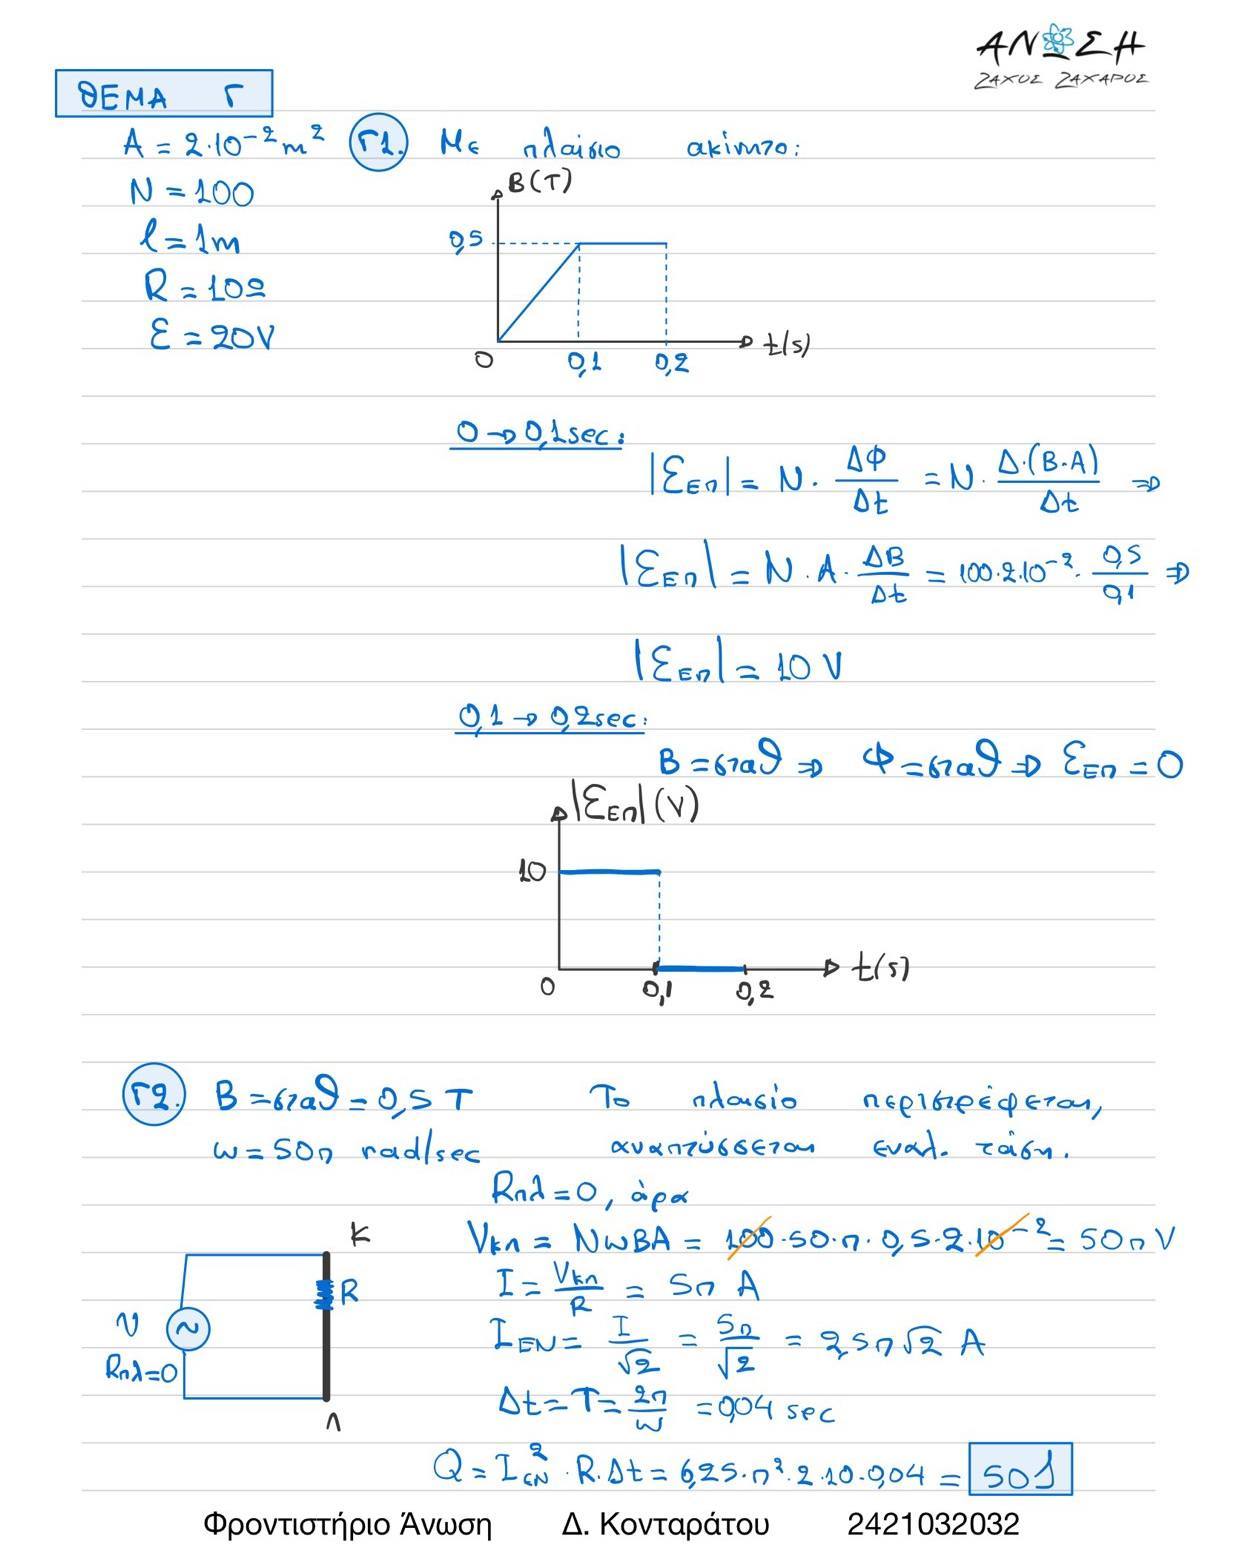 ΑΝΩΣΗ
ΖΑΧΟΣ ΖΑΧΑΡΟΣ
ΘΕΜΑ Γ
A = 2·10⁻² m²
Γ1. Με πλαίσιο ακίνητο:
N = 100
l = 1m
R = 10Ω
ε = 20V
B(T)
0,5
0
0,1
0,2
t(s)
0→0,1sec:
|ε_επ| = N · ΔΦ/Δt = N · Δ·(B·A)/Δt ⇒
|ε_επ| = N · A · ΔB/Δt = 100·2·10⁻² · 0,5/0,1 ⇒
|ε_επ| = 10 V
0,1→0,2sec:
B = σταθ ⇒ Φ = σταθ ⇒ ε_επ = 0
|ε_επ| (V)
10
0
0,1
0,2
t(s)
Γ2. B = σταθ = 0,5 T Το πλαισιο περιστρέφεται,
ω = 50π rad/sec αναπτύσσεται εναλ. τάση.
Rπλ = 0, άρα
V_κλ = NωBA = 100·50·π·0,5·2·10⁻² = 50π V
I = V_κλ/R = 5π A
I_ΕΝ = I/√2 = 5π/√2 = 2,5π√2 A
Δt = T = 2π/ω = 0,04 sec
Q = I_εΝ² · R·Δt = 6,25·π²·2·10·0,04 = 50J
K
R
υ
~
Rπλ=0
Λ
Φροντιστήριο Άνωση Δ. Κονταράτου 2421032032